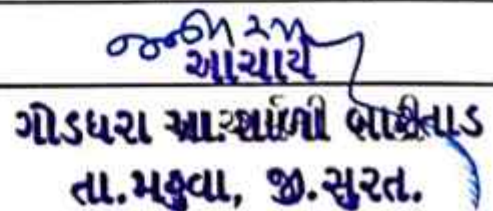 આચાર્ય
ગોડધરા આ.શાળા બારતાડ
તા.મહુવા, જી.સુરત.